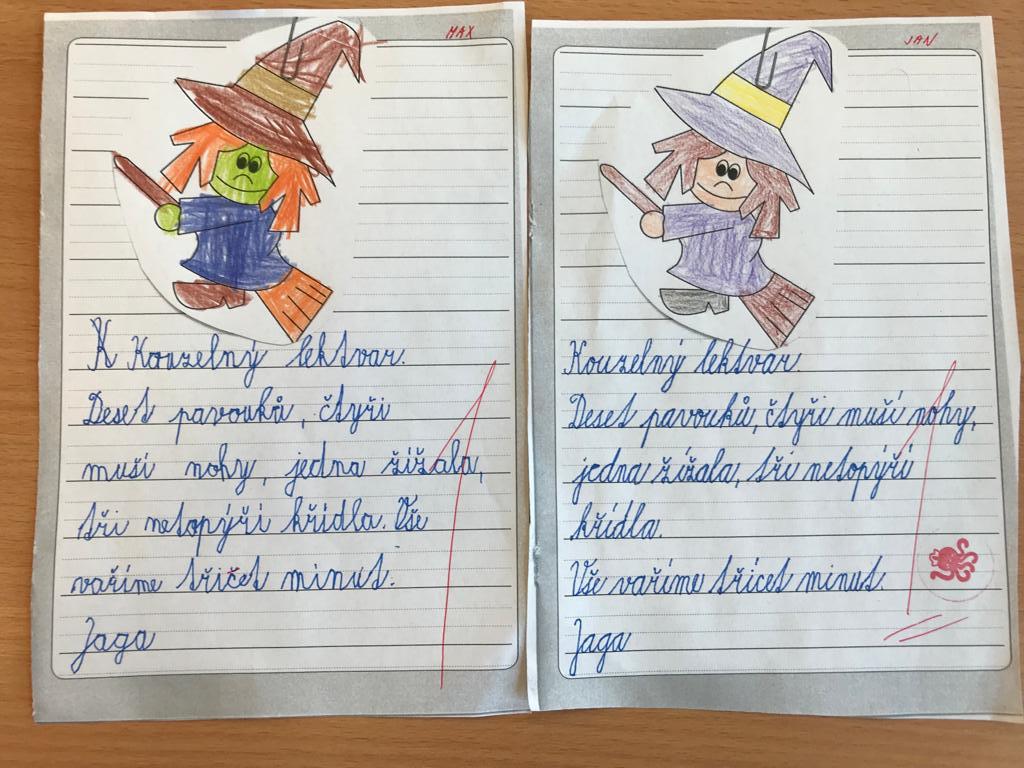 MAX
K Kouzelný lektvar.
Deset pavouků, čtyři
muší nohy, jedna žížala,
tři netopýří křídla. Vše
vaříme třičet minut.
Jaga
JAN
Kouzelný lektvar.
Deset pavouků, čtyři muší nohy,
jedna žížala, tři netopýří
křídla.
Vše vaříme třicet minut.
Jaga